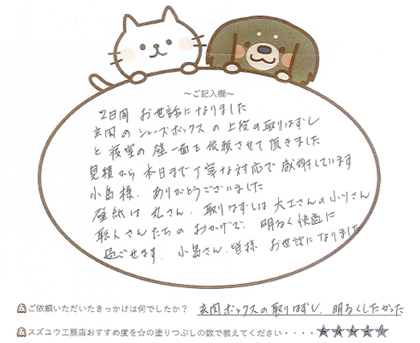 〜ご記入欄〜
2日間 お世話になりました
玄関のシューズボックスの上段の取りはずし
と寝室の壁一面を依頼させて頂きました
見積から本日まで丁寧な対応で感謝しています
小島様、ありがとうございました
壁紙は丸さん、取りはずしは大工さんの小川さん
職人さんたちのおかげで、明るく快適に
過ごせます。小島さん、皆様 お世話になりました
ご依頼いただいたきっかけは何でしたか? 玄関ボックスの取りはずし、明るくしたかった
スズユウ工務店おすすめ度を☆の塗りつぶしの数で教えてください・・・・★★★★★